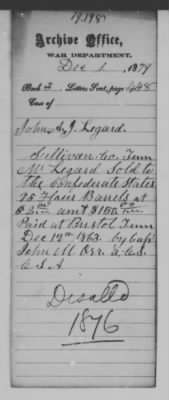 19198
Archive Office,
WAR DEPARTMENT,
Dec 1, 1879
Book Letters Sent, page 448
Case of
John A. J. Legard.
Sullivan Co. Tenn
Mr Legard Sold to
The Confederate States
75 Flour Barrels at
$2 00 amt $150 00
Paid at Bristol Tenn
Dec 12th 1863. by Capt
John M. Orr. A.C.S.
C S A
Disalld
1876